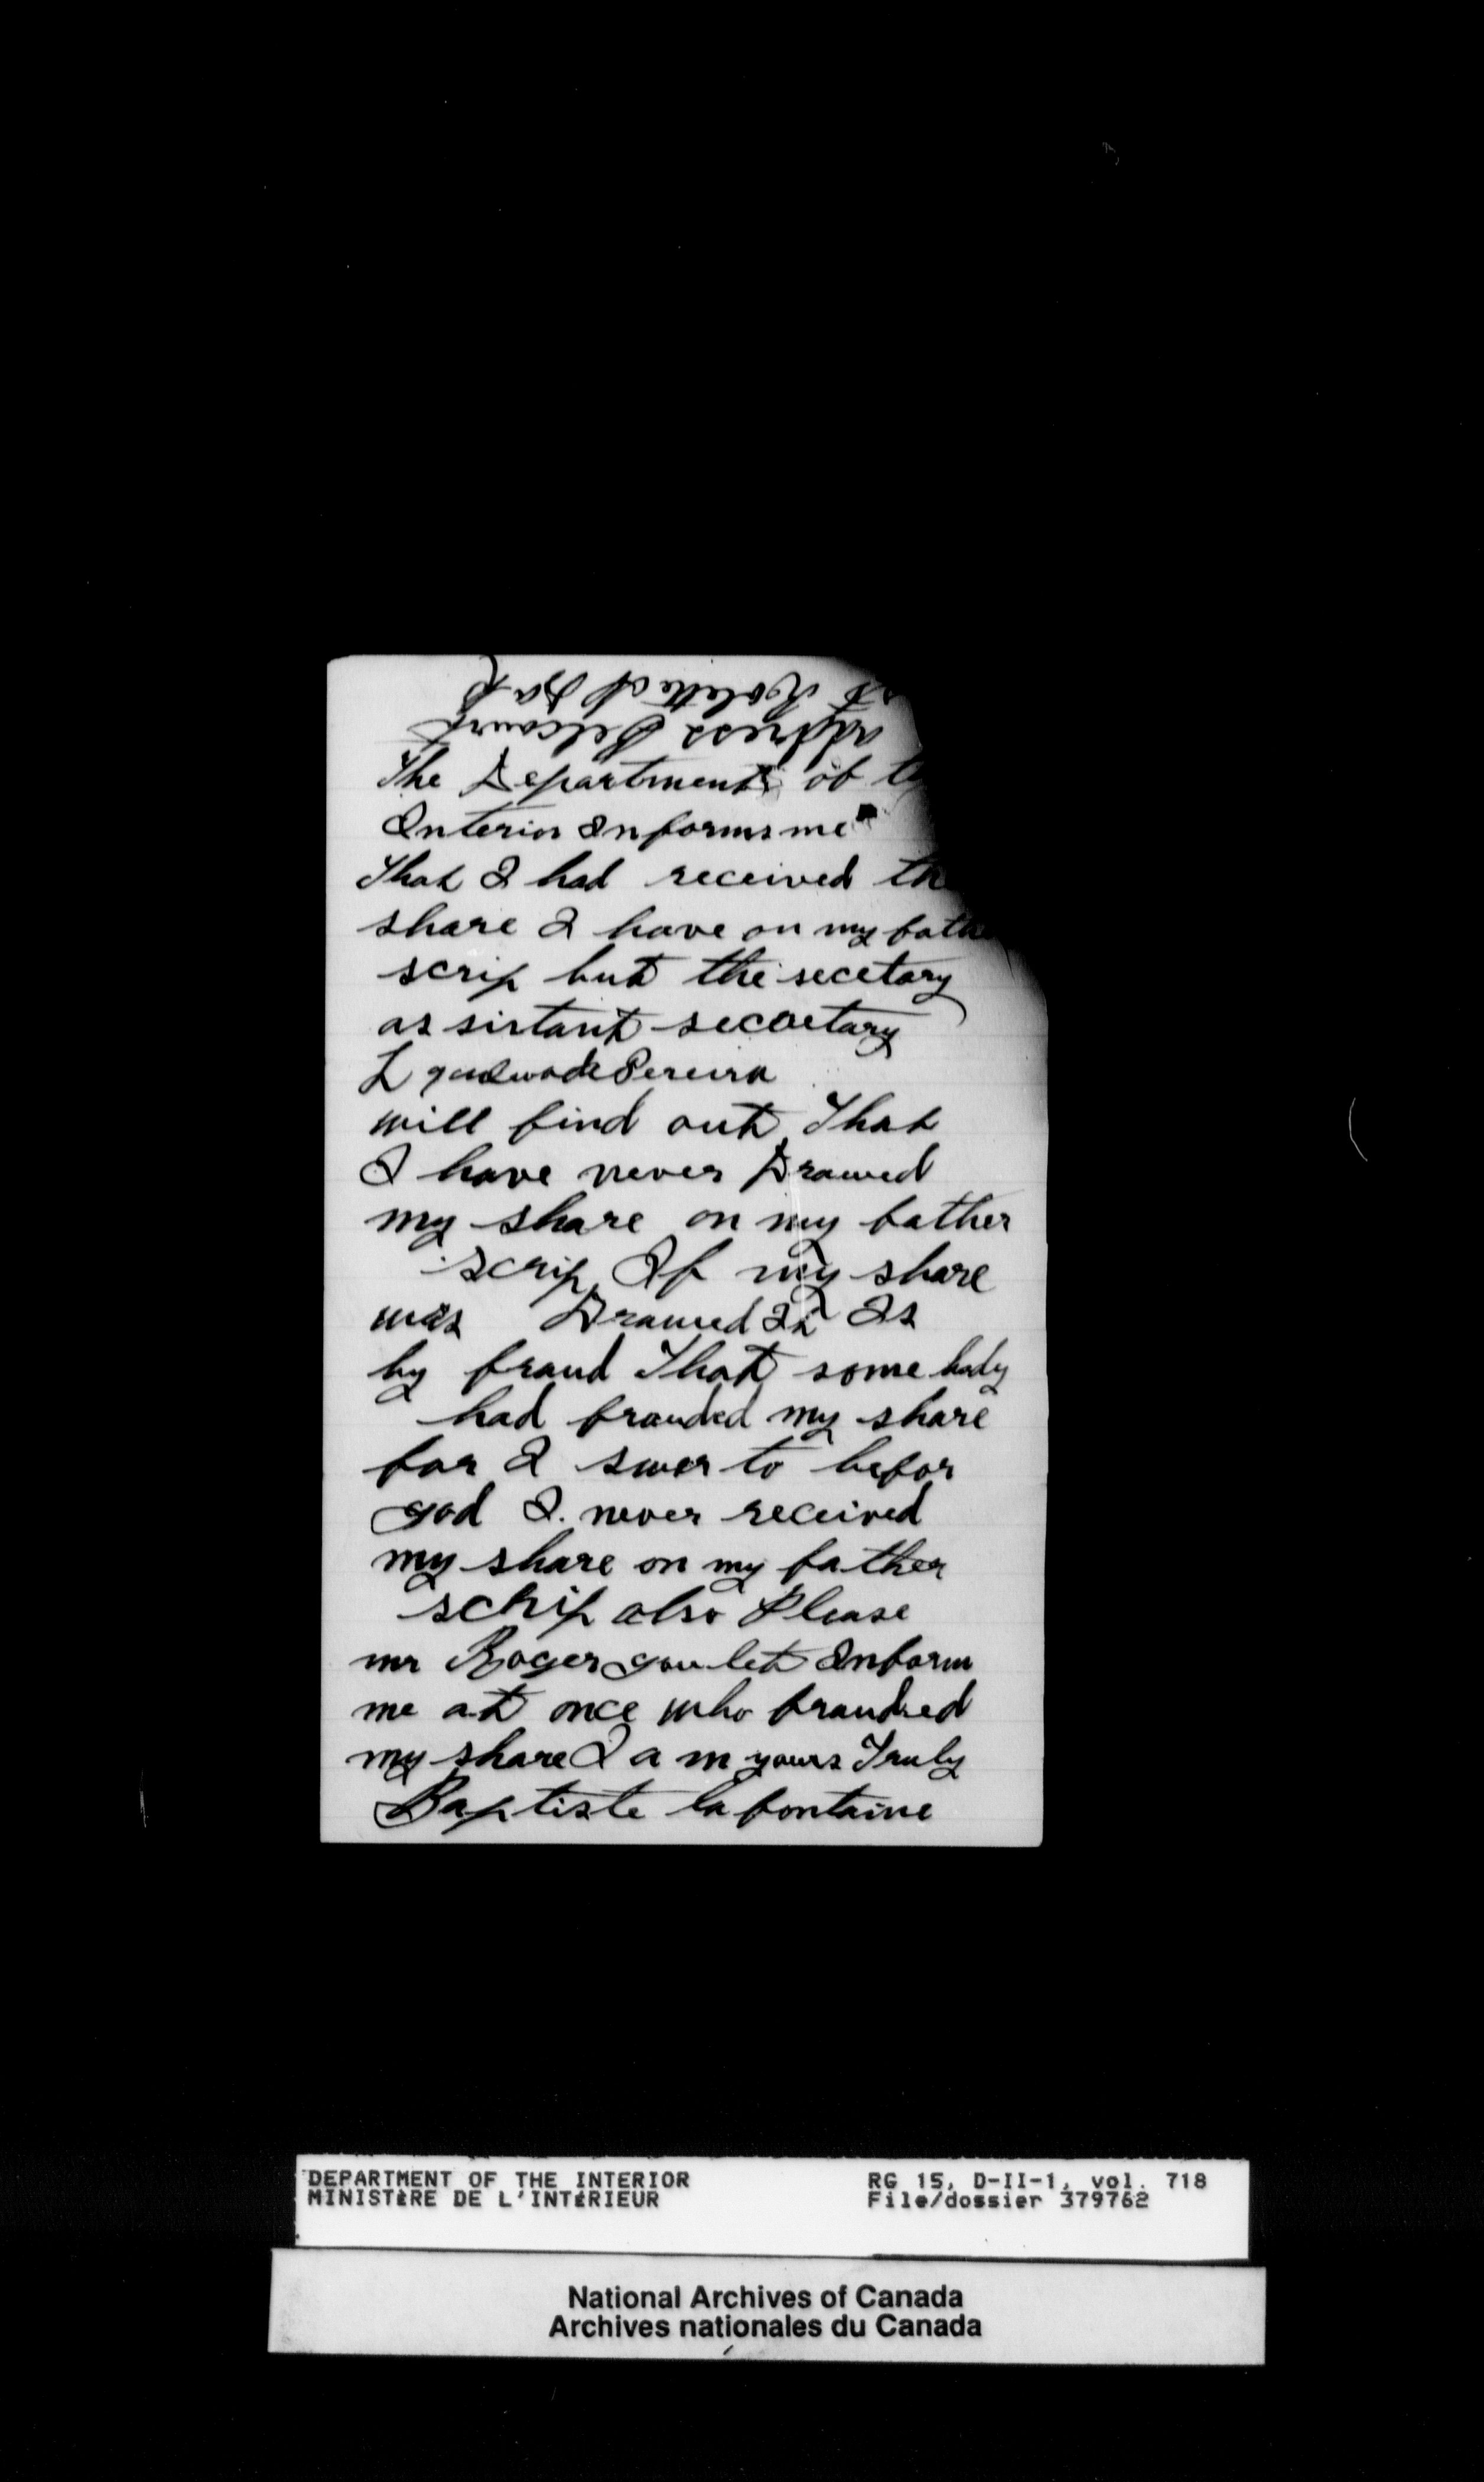 address Belcourt
Rolette N Dak
The Department of
Interior Informs me
That I had received
share I have on my
scrip but the secetary
assistant secretary
L Pereira
will find out That
I have never Drawed
my share on my father
scrip If my share
was Drawed It Is
by fraud That some body
had frauded my share
for I swer to befor
god I. never received
my share on my father
scrip also Please
mr Roger goulet Inform
me at once who frauded
my share I am yours Truly
Baptiste lafontaine
DEPARTMENT OF THE INTERIOR
MINISTÈRE DE L'INTÉRIEUR
RG 15, D-II-1, vol. 718
File/dossier 379762
National Archives of Canada
Archives nationales du Canada